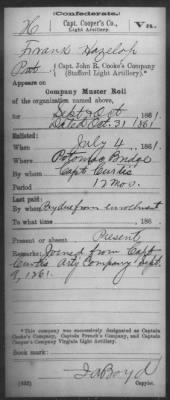 (Confederate.)
H Capt. Cooper's Co., Va.
Light Artillery.
Frank Hazeloh
Pvt { Capt. John R. Cooke's Company
(Stafford Light Artillery).*
Appears on
Company Muster Roll
of the organization named above,
for Sept & Oct, 1861.
Dated Oct. 31 1861.
Enlisted:
When July 4, 1861.
Where Potomac Bridge
By whom Capt. Curtis
Period 12 Mos.
Last paid:
By whom By due from enrollment
To what time , 186 .
Present or absent Present
Remarks: Joined from Capt
Curtis Arty Company Sept.
1861.
*This company was successively designated as Captain
Cooke's Company, Captain French's Company, and Captain
Cooper's Company Virginia Light Artillery.
Book mark:
Boyd
Copyist.